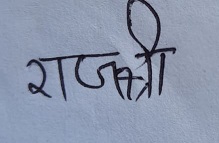 राजश्री